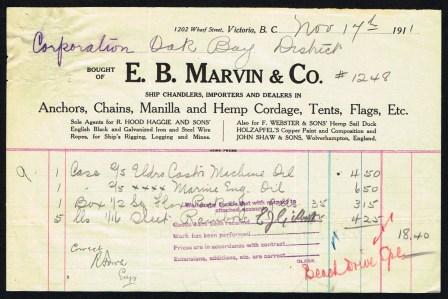 1202 Wharf Street, Victoria, B. C. Nov 17th 1911
Corporation Oak Bay District
BOUGHT OF E. B. MARVIN & CO. #1248
SHIP CHANDLERS, IMPORTERS AND DEALERS IN
Anchors, Chains, Manilla and Hemp Cordage, Tents, Flags, Etc.
Sole Agents for R. HOOD HAGGIE AND SONS'
English Black and Galvanized Iron and Steel Wire
Ropes, for Ship's Rigging, Logging and Mines.
Also for F. WEBSTER & SONS' Hemp Sail Duck
HOLZAPFEL'S Copper Paint and Composition and
JOHN SHAW & SONS, Wolverhampton, England.
1 Case 2/5 Castor Machine Oil 4 50
1 " 2/5 xxxx Marine Eng. Oil 6 50
1 Box 1/2 Sq Flax 35 3 15
5 lbs 1/16 Sheet 4 25
18.40
attached account
Work has been performed
Prices are in accordance with contract
Extensions, additions, etc. are correct
CLERK
Correct
Engr
Beach Drive